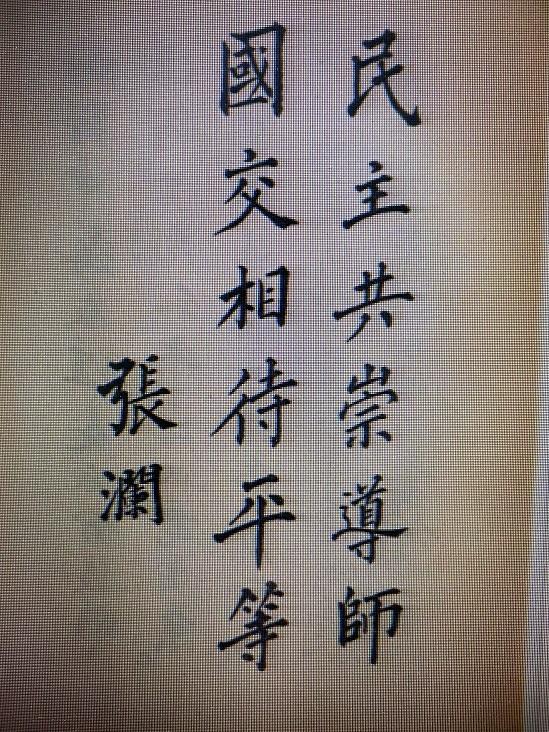 民主共崇導師
國交相待平等
張瀾